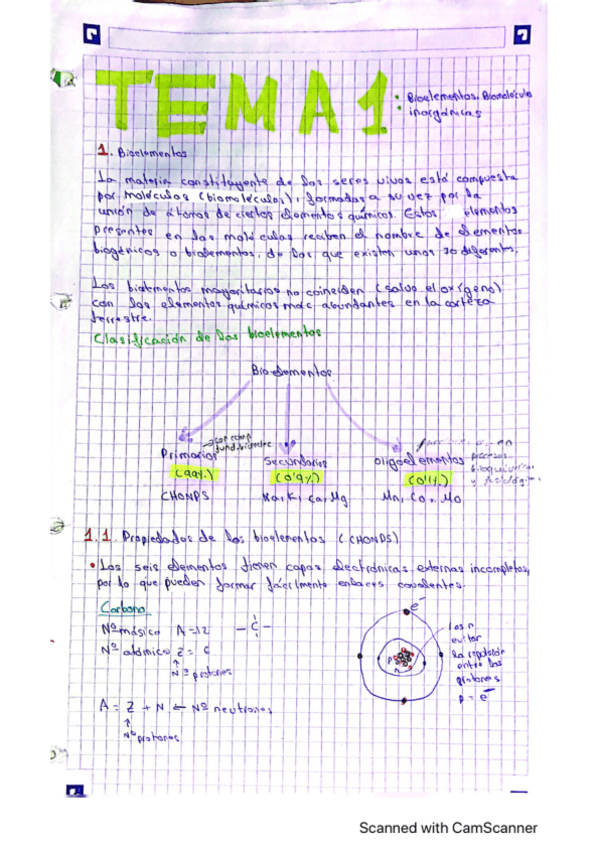 TEMA 1
: Bioelementos. Biomoléculas
inorgánicas
1. Bioelementos
La materia constituyente de los seres vivos está compuesta
por moléculas (biomoléculas), formadas a su vez por la
unión de átomos de ciertos elementos químicos. Estos elementos
presentes en las moléculas reciben el nombre de elementos
biogénicos o bioelementos, de los que existen unos 70 diferentes.
Los bioelementos mayoritarios no coinciden (salvo el oxígeno)
con los elementos químicos más abundantes en la corteza
terrestre.
Clasificación de los bioelementos
Bioelementos
Primarios
(99%)
CHONPS
Secundarios
(0'9%)
Na, K, Ca, Mg
oligoelementos
(0'1%)
Mn, Co, Mo
en
procesos
bioquímicos
y fisiológicos
1.1. Propiedades de los bioelementos (CHONPS)
• Los seis elementos tienen capas electrónicas externas incompletas,
por lo que pueden formar fácilmente enlaces covalentes.
Carbono
Nº másico A = 12 - C -
Nº atómico Z = 6
↑
Nº protones
A = Z + N ← Nº neutrones
↑
Nº protones
e⁻
p
n
los n
evitan
la repulsión
entre los
protones
p = e⁻
Scanned with CamScanner